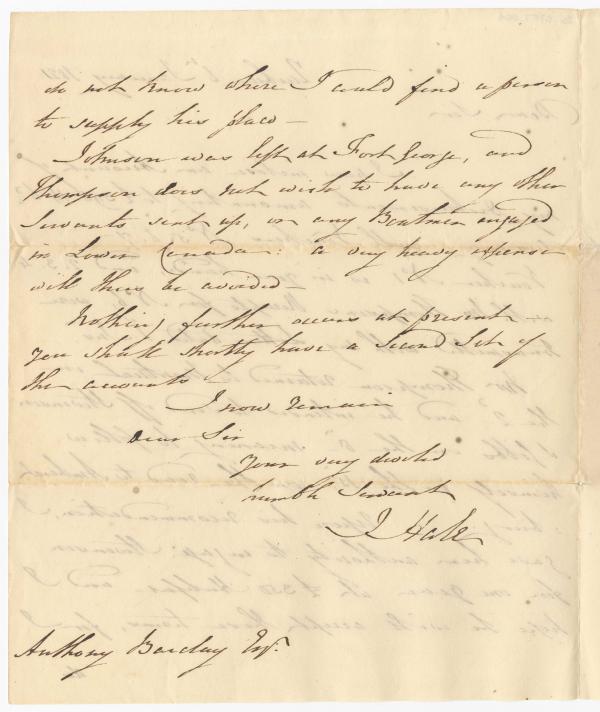 do not know where I could find a person
to supply his place —
Johnson was left at Fort George, and
Thompson does not wish to have any other
Servants sent up, or any Boatmen engaged
in Lower Canada: a very heavy expense
will thus be avoided —
Nothing further occurs at present —
you shall shortly have a Second Set of
the accounts —
I now remain
Dear Sir
Your very devoted
humble Servant
J Hale
Anthony Barclay Esqr.